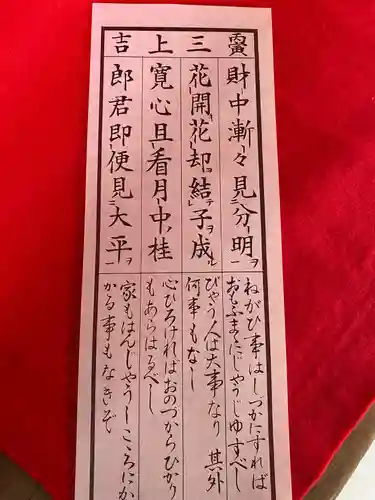 三上吉
財中漸々見分明
花開花却結子成
寛心且看月中桂
郎君即便見大平
ねがひ事はしつかにすれば
おもふまゝにじやうじゆすべし
びやう人は大事なり 其外
何事もなし
心ひろければおのづからひかり
もあらはるべし
家もはんじやうしこゝろにか
かる事もなきぞ